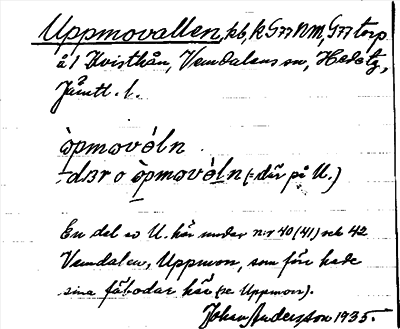 Uppmovallen, kb, k G77 NM, G77 torp
å 1 Kvisthån, Vemdalens sn, Hedetg,
Jämtl. l.
òpmωvéln
En del av U. hör under n:r 40 (41) och 42
Vemdalen, Uppmon, som förr hade
sina fäbodar här (se Uppmon).
Johan Anderzon 1935.